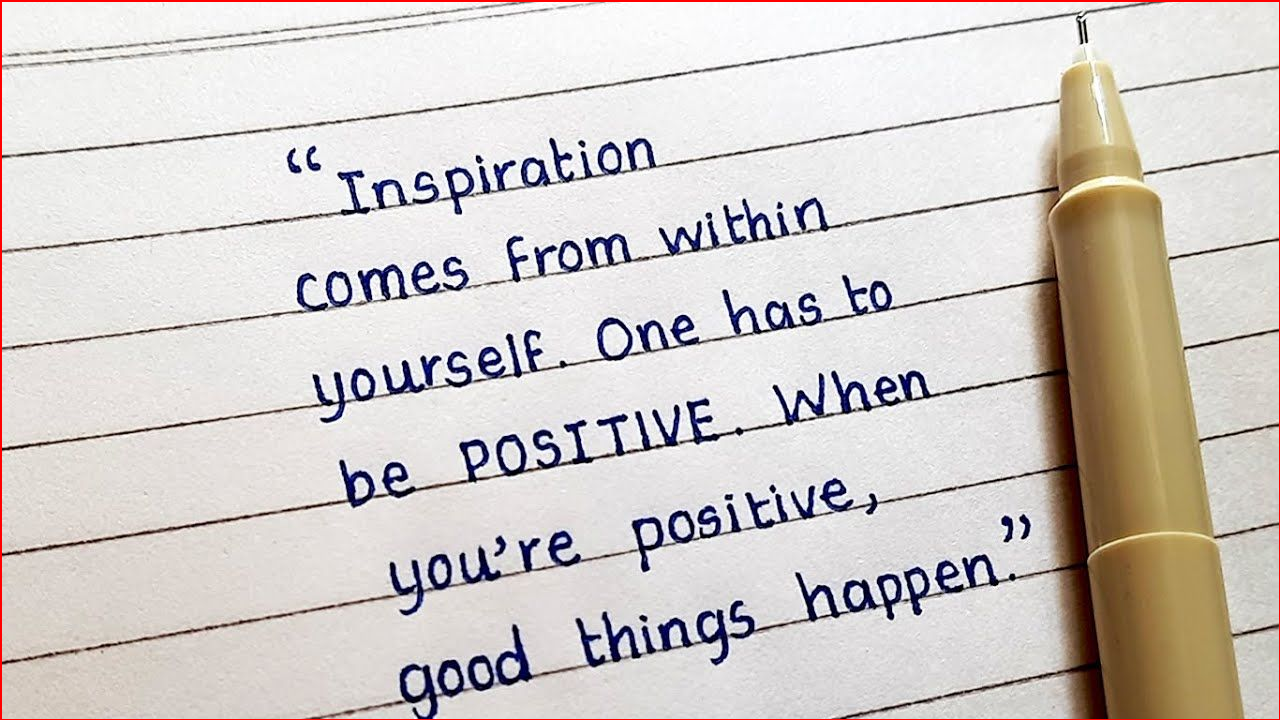 “Inspiration
comes from within
yourself. One has to
be POSITIVE. When
you’re positive,
good things happen.”